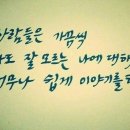 사람들은 가끔씩
나도 잘 모르는 나에 대해
너무나 쉽게 이야기를